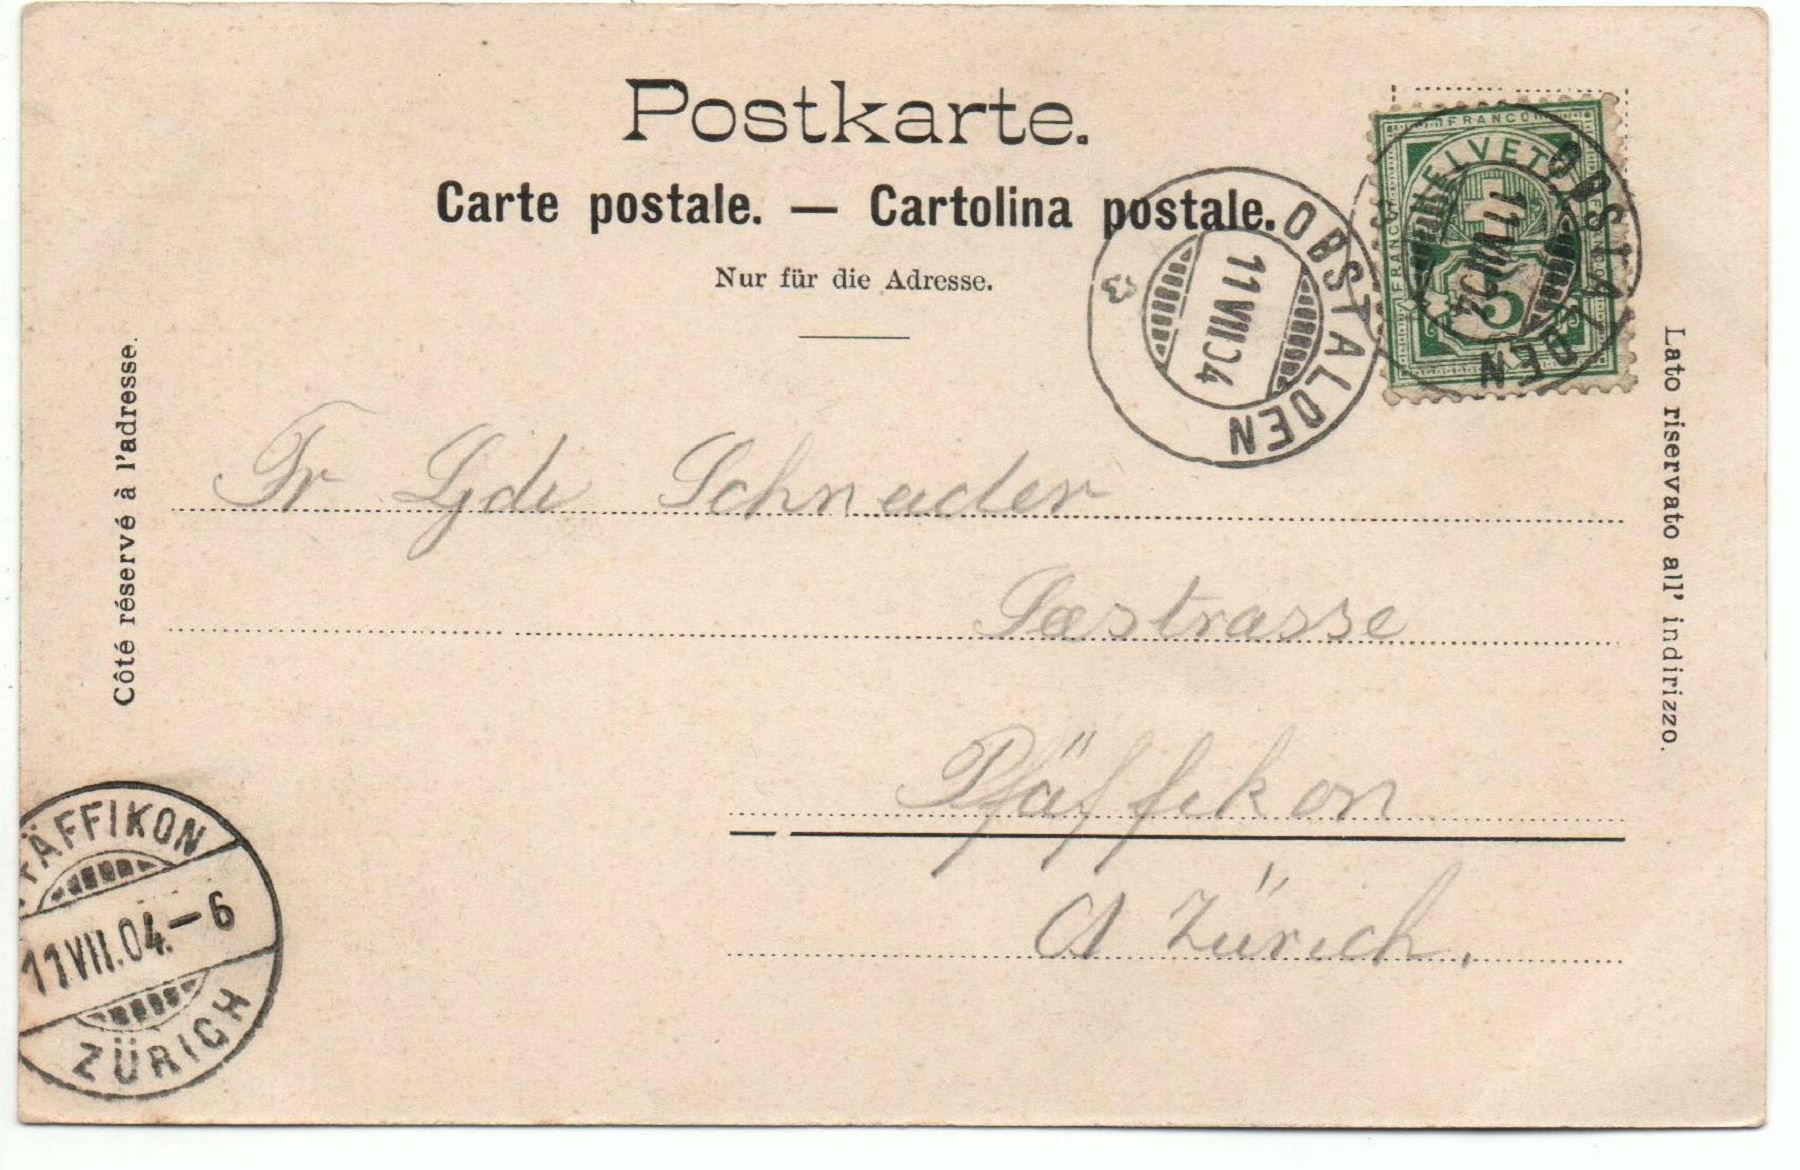 Postkarte.
Carte postale. — Cartolina postale.
Nur für die Adresse.
Côté réservé à l'adresse.
Lato riservato all' indirizzo.
FRANCO
HELVETIA
FRANCO
5
OBSTALDEN
11 VII 04
OBSTALDEN
11 VII 04
Fr Schneider
Seestrasse
Pfäffikon
Ct Zürich.
PFÄFFIKON
11 VII. 04. – 6
ZÜRICH